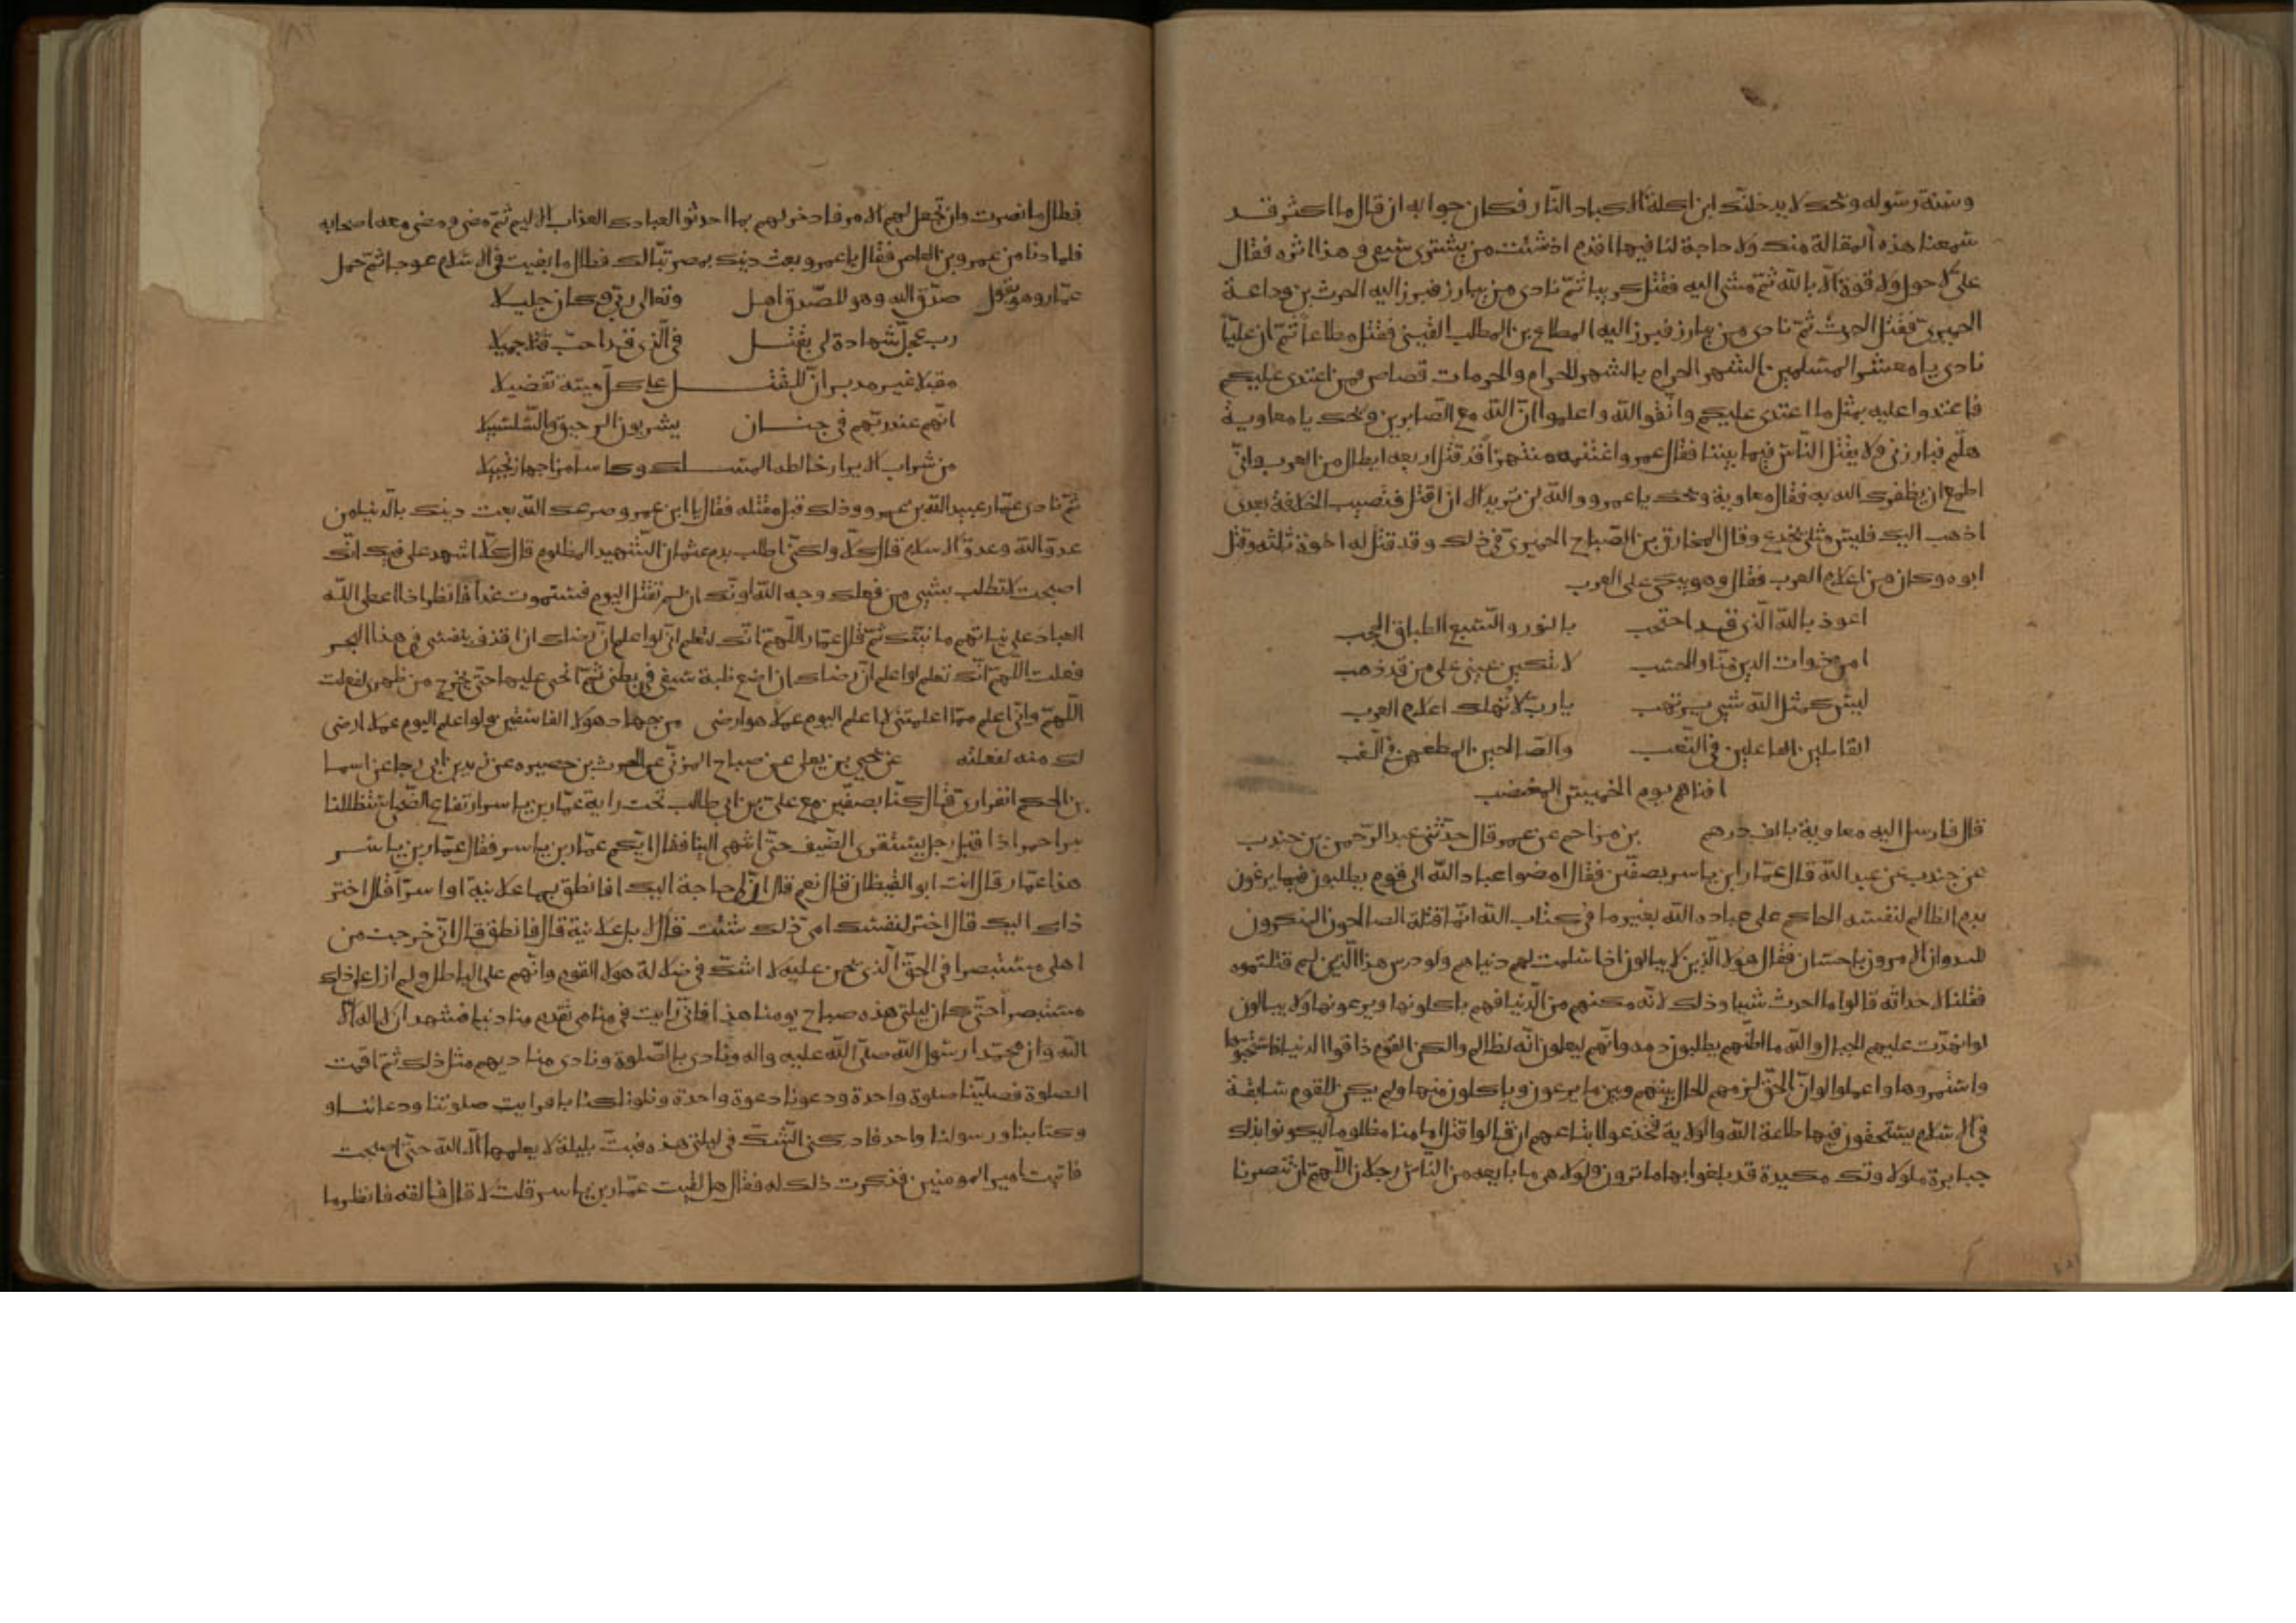 وسنة رسوله ويحك لا يدخلنك ابن اكلة الاكباد النار فكان جوابه ان قال ما اكثر قد
سمعنا هذه المقالة منك ولا حاجة لنا فيها اقدم اذ شئت من يشترى سيفى وهذا اثره فقال
على لا حول ولا قوة الا بالله ثم مشى اليه فقتل كريبا ثم نادى من يبارز فبرز اليه الحرث بن وداعة
الحميرى فقتل الحرث ثم نادى من يبارز فبرز اليه المطاع بن المطلب القينى فقتل مطاعا ثم ان عليا
نادى يا معشر المسلمين الشهر الحرام بالشهر الحرام والحرمات قصاص فمن اعتدى عليكم
فاعتدوا عليه بمثل ما اعتدى عليكم واتقوا الله واعلموا ان الله مع الصابرين ويحك يا معاوية
هلم فبارزنى ولا يقتل الناس فيما بيننا فقال عمرو اغتنمه منتهزا قد قتل اربعه ابطال من العرب وانى
اطمع ان يظفرك الله به فقال معاوية ويحك يا عمرو والله لن تريد الا ان اقتل فتصيب الخلافة بعدى
اذهب اليك فليس مثلى يخدع وقال المخارق بن الصباح الحميرى فى ذلك وقد قتل له اخوة ثلثه وقتل
ابوه وكان من اعلام العرب فقال وهو يبكى على العرب
اعوذ بالله الذى قد احتجب بالنور والسبع الطباق الحجب
امن ذوات الدين منا والحسب لا تبكين عينى على من قد ذهب
ليس كمثل الله شى يرتهب يا رب لا تهلك اعلام العرب
القايلين الفاعلين فى التعب والصالحين المطعمين فى
افناهم يوم الخميس المغتصب
قال فارسل اليه معاوية بالف درهم بن مزاحم عن عمر قال حدثنى عبد الرحمن بن جندب
عن جندب بن عبد الله قال عمار ابن ياسر بصفين فقال امضوا عباد الله الى قوم يطلبون فيما يزعمون
بدم الظالم لنفسه الحاكم على عباد الله بغير ما فى كتاب الله انما قتله الصالحون المنكرون
للعدوان الامرون باحسان فقال هولا الذين لا يبالون اذا سلمت لهم دنياهم ولو درس هذا الدين لم قتلتموه
فقلنا لاحداثه قالوا ما احدث شيا وذلك لانه مكنهم من الدنيا فهم ياكلونها ويرعونها ولا يبالون
لو انهدت عليهم الجبال والله ما اظنهم يطلبون دمه وانهم ليعلمون انه لظالم ولكن القوم ذاقوا الدنيا فاستحبوها
واستمروها واعلموا لو ان الحق لزمهم لحال بينهم وبين ما يرعون وياكلون منها ولم يكن للقوم سابقة
فى الاسلام يستحقون فيها طاعة الله والولاية فخدعوا اتباعهم ان قالوا قتل امامنا مظلوما ليكونوا بذلك
جبابرة ملوكا وتلك مكيدة قد بلغوا بها ما ترون ولولا هى ما بايعه من الناس رجلان اللهم ان تنصرنا
فطال ما نصرت وان تجعل لهم الامر فادخر لهم بما احدثوا لعبادك العذاب الاليم ثم مضى ومضى معه اصحابه
فلما دنا من عمرو بن العاص فقال يا عمرو بعت دينك بمصر تبا لك فطال ما بغيت فى الاسلام عوجا ثم حمل
عمار وهو يقول صدق الله وهو للصدق اهل وتعالى ربى وكان جليلا
رب عجل شهادة لى بقتل فى الذى قد احب قتلا جميلا
مقبلا غير مدبر ان للقتل على كل ميتة تفضيلا
انهم عند ربهم فى جنان يشربون الرحيق والسلسبيلا
من شراب الابرار خالطه المسك وكاسا مزاجها زنجبيلا
ثم نادى عمار عبيد الله بن عمرو وذلك قبل مقتله فقال يا ابن عمر وصرعك الله بعت دينك بالدنيا من
عدو الله وعدو الاسلام قال كلا ولكنى اطلب بدم عثمان الشهيد المظلوم قال كلا اشهد على فيك انك
اصبحت لا تطلب بشى من فعلك وجه الله وانك ان لم تقتل اليوم فستموت غدا فانظر اذا اعطى الله
العباد على نياتهم ما نيتك ثم قال عمار اللهم انك لتعلم انى لو اعلم ان رضاك ان اقذف بنفسى فى هذا البحر
ففعلت اللهم انك تعلم لو اعلم ان رضاك ان اضع ظبة سيفى فى بطنى ثم انحنى عليها حتى يخرج من ظهرى لفعلت
اللهم وانى اعلم مما اعلمتنى لا اعلم اليوم عملا هو ارضى من جهاد هولا الفاسقين ولو اعلم اليوم عملا ارضى
لك منه لفعلته عن يحيى بن يعلى عن صباح المزنى عن الحرث بن حصيره عن زيد بن ابى رجا عن اسما
بن الحكم الفزارى قال كنا بصفين مع على بن ابى طالب تحت راية عمار بن ياسر ارتفاع الضحا استظللنا
ببرد احمر اذ اقبل رجل يستقرى الصف حتى انتهى الينا فقال ايكم عمار بن ياسر فقال عمار بن ياسر
هذا عمار قال انت ابو اليقظان قال نعم قال ان لى حاجة اليك افانطق بها علانية او اسرا قال اختر
ذاك اليك قال اختر لنفسك اى ذلك شئت قال لا بل علانية قال فانطق قال انى خرجت من
اهلى مستبصرا فى الحق الذى نحن عليه لا اشك فى ضلالة هولا القوم وانهم على الباطل ولم ازل على ذلك
مستبصرا حتى كان ليلتى هذه صباح يومنا هذا فانى رايت فى منامى تقدم منادينا فشهد ان لا اله الا
الله وان محمدا رسول الله صلى الله عليه واله ونادى بالصلوة ونادى مناديهم مثل ذلك ثم اقمت
الصلوة فصلينا صلوة واحدة ودعونا دعوة واحدة وتلونا كتابا فرايت صلوتنا ودعائنا و
وكتابنا ورسولنا واحد فادركنى الشك فى ليلتى هذه فبت بليلة لا يعلمها الا الله حتى اصبحت
فاتيت امير المومنين فذكرت ذلك له فقال هل لقيت عمار بن ياسر قلت لا قال فالقه فانظر ما